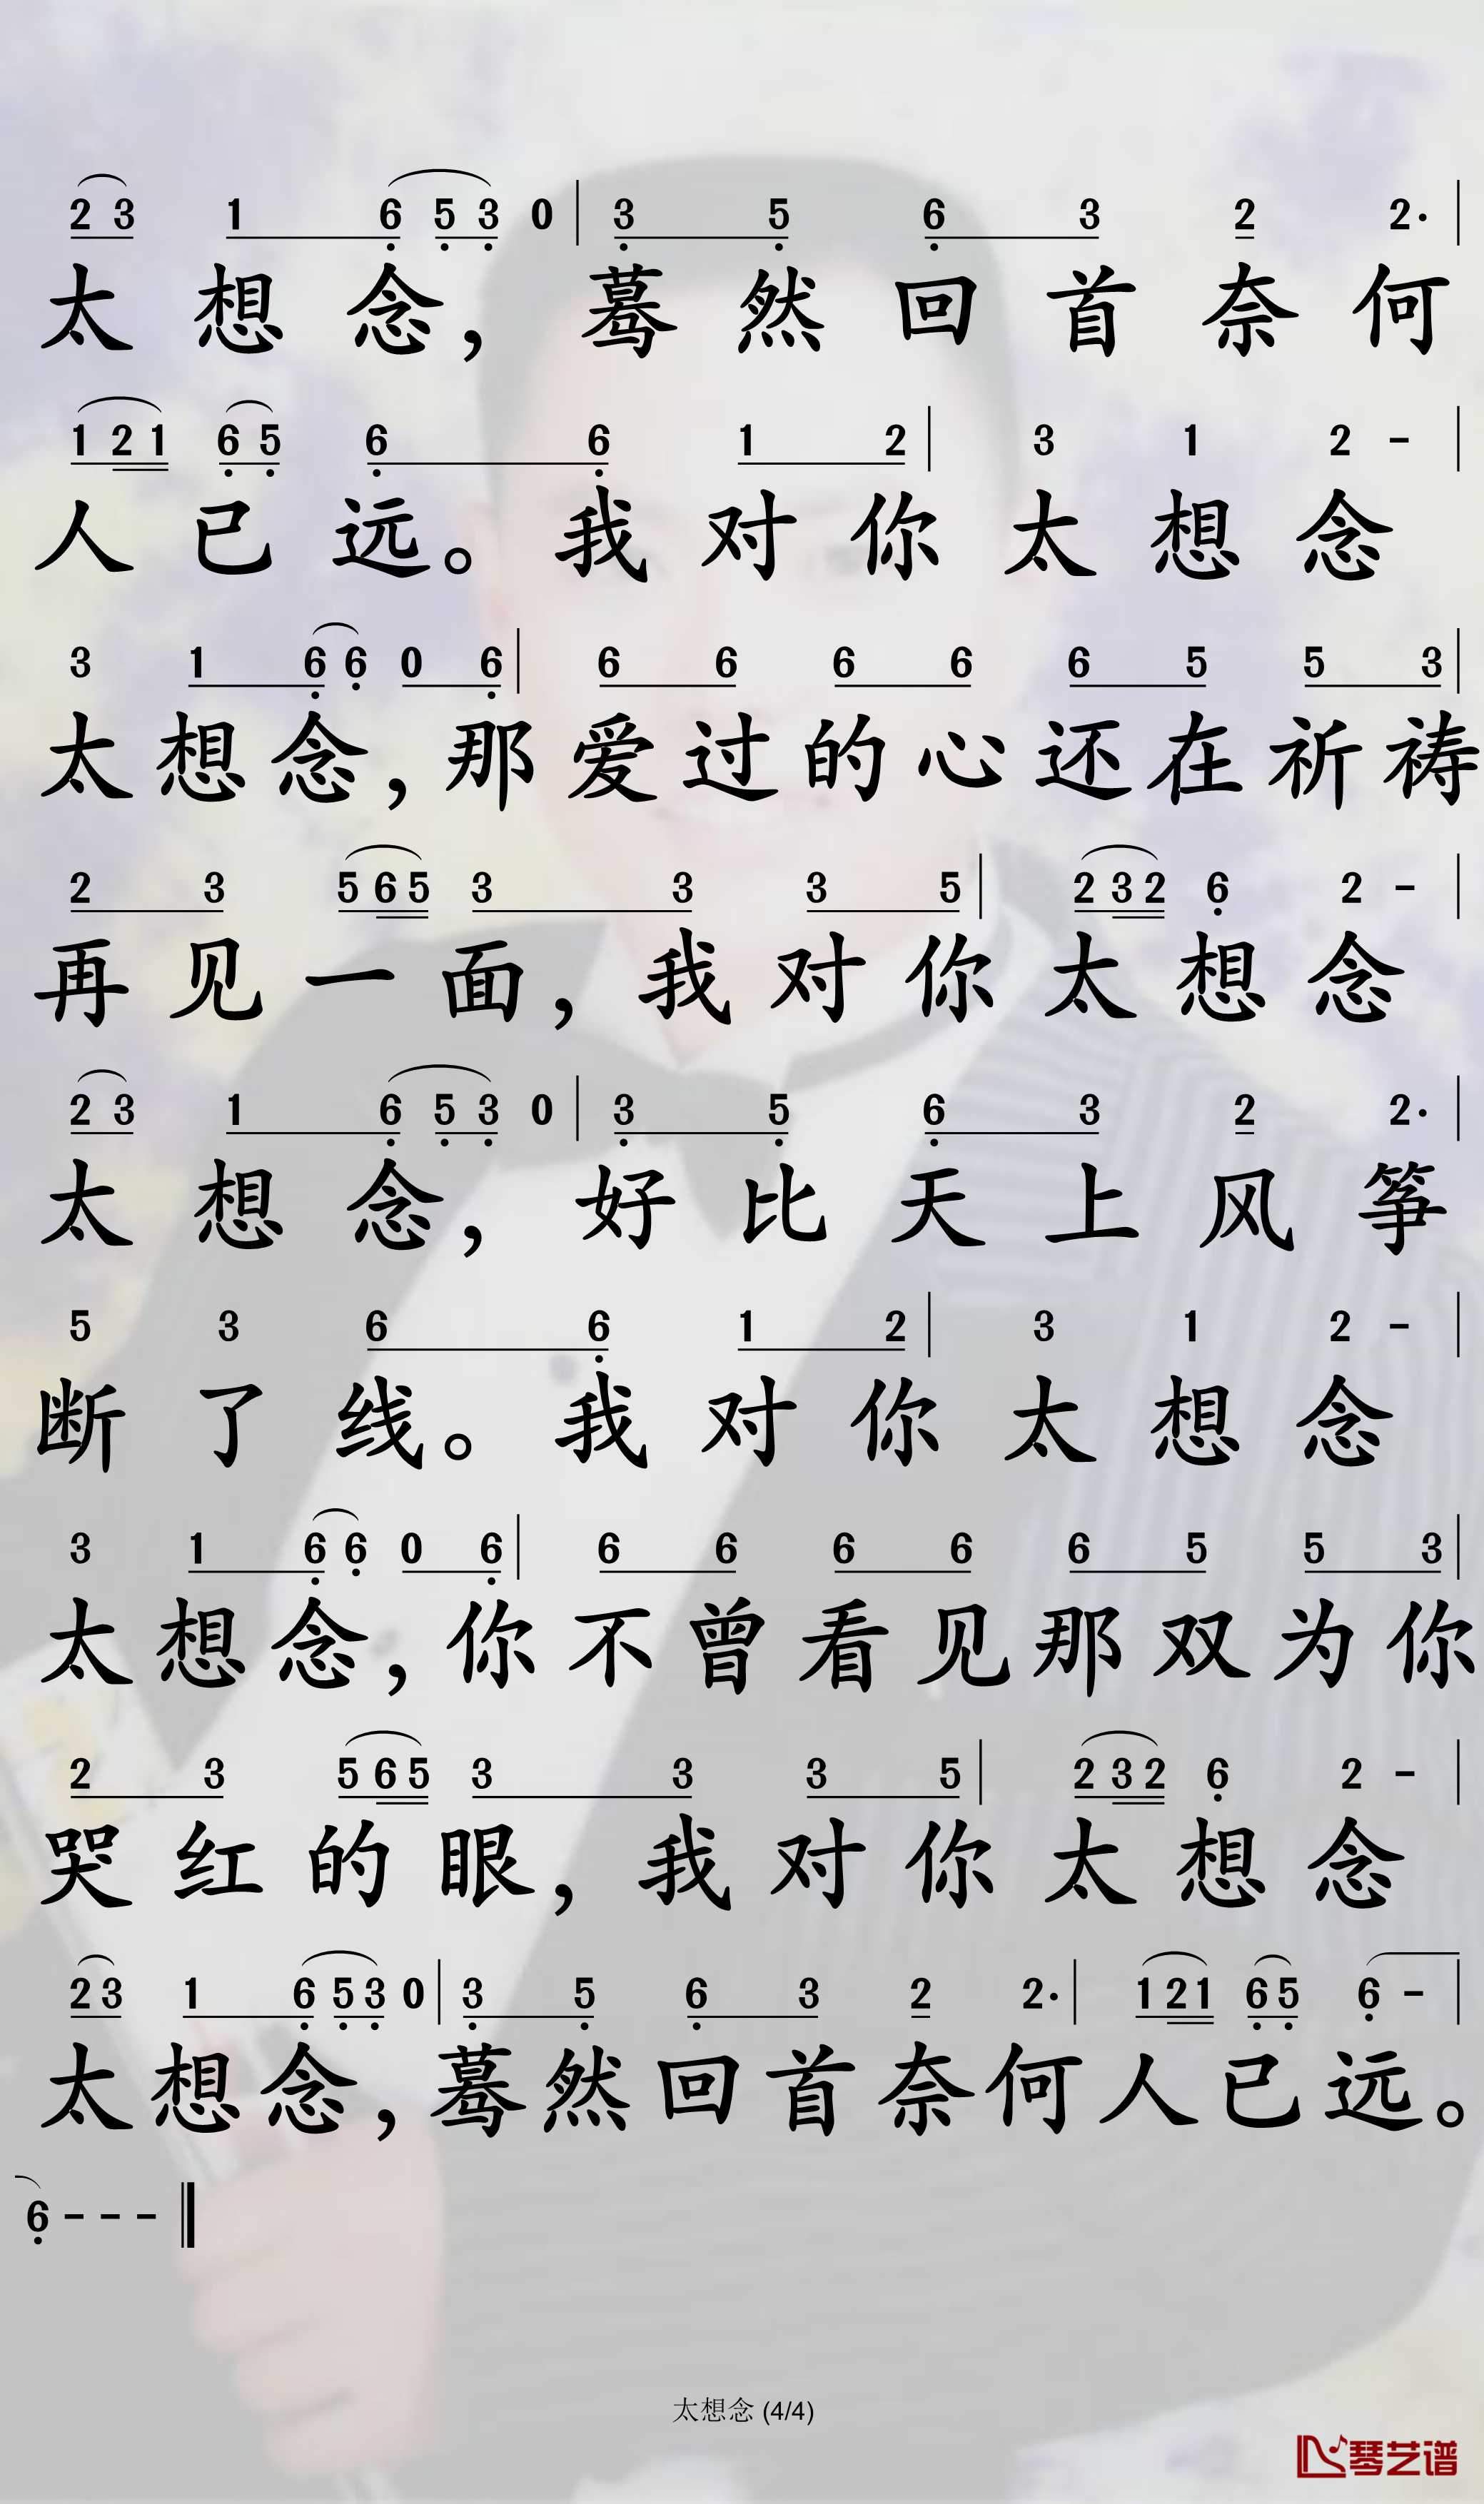 2 3 1 6 5 3 0 | 3 5 6 3 2 2· |
太想念，蓦然回首奈何
1 2 1 6 5 6 6 1 2 | 3 1 2 - |
人已远。我对你太想念
3 1 6 6 0 6 | 6 6 6 6 6 5 5 3 |
太想念，那爱过的心还在祈祷
2 3 5 6 5 3 3 3 5 | 2 3 2 6 2 - |
再见一面，我对你太想念
2 3 1 6 5 3 0 | 3 5 6 3 2 2· |
太想念，好比天上风筝
5 3 6 6 1 2 | 3 1 2 - |
断了线。我对你太想念
3 1 6 6 0 6 | 6 6 6 6 6 5 5 3 |
太想念，你不曾看见那双为你
2 3 5 6 5 3 3 3 5 | 2 3 2 6 2 - |
哭红的眼，我对你太想念
2 3 1 6 5 3 0 | 3 5 6 3 2 2· | 1 2 1 6 5 6 - |
太想念，蓦然回首奈何人已远。
6 - - - ‖
太想念 (4/4)
琴艺谱